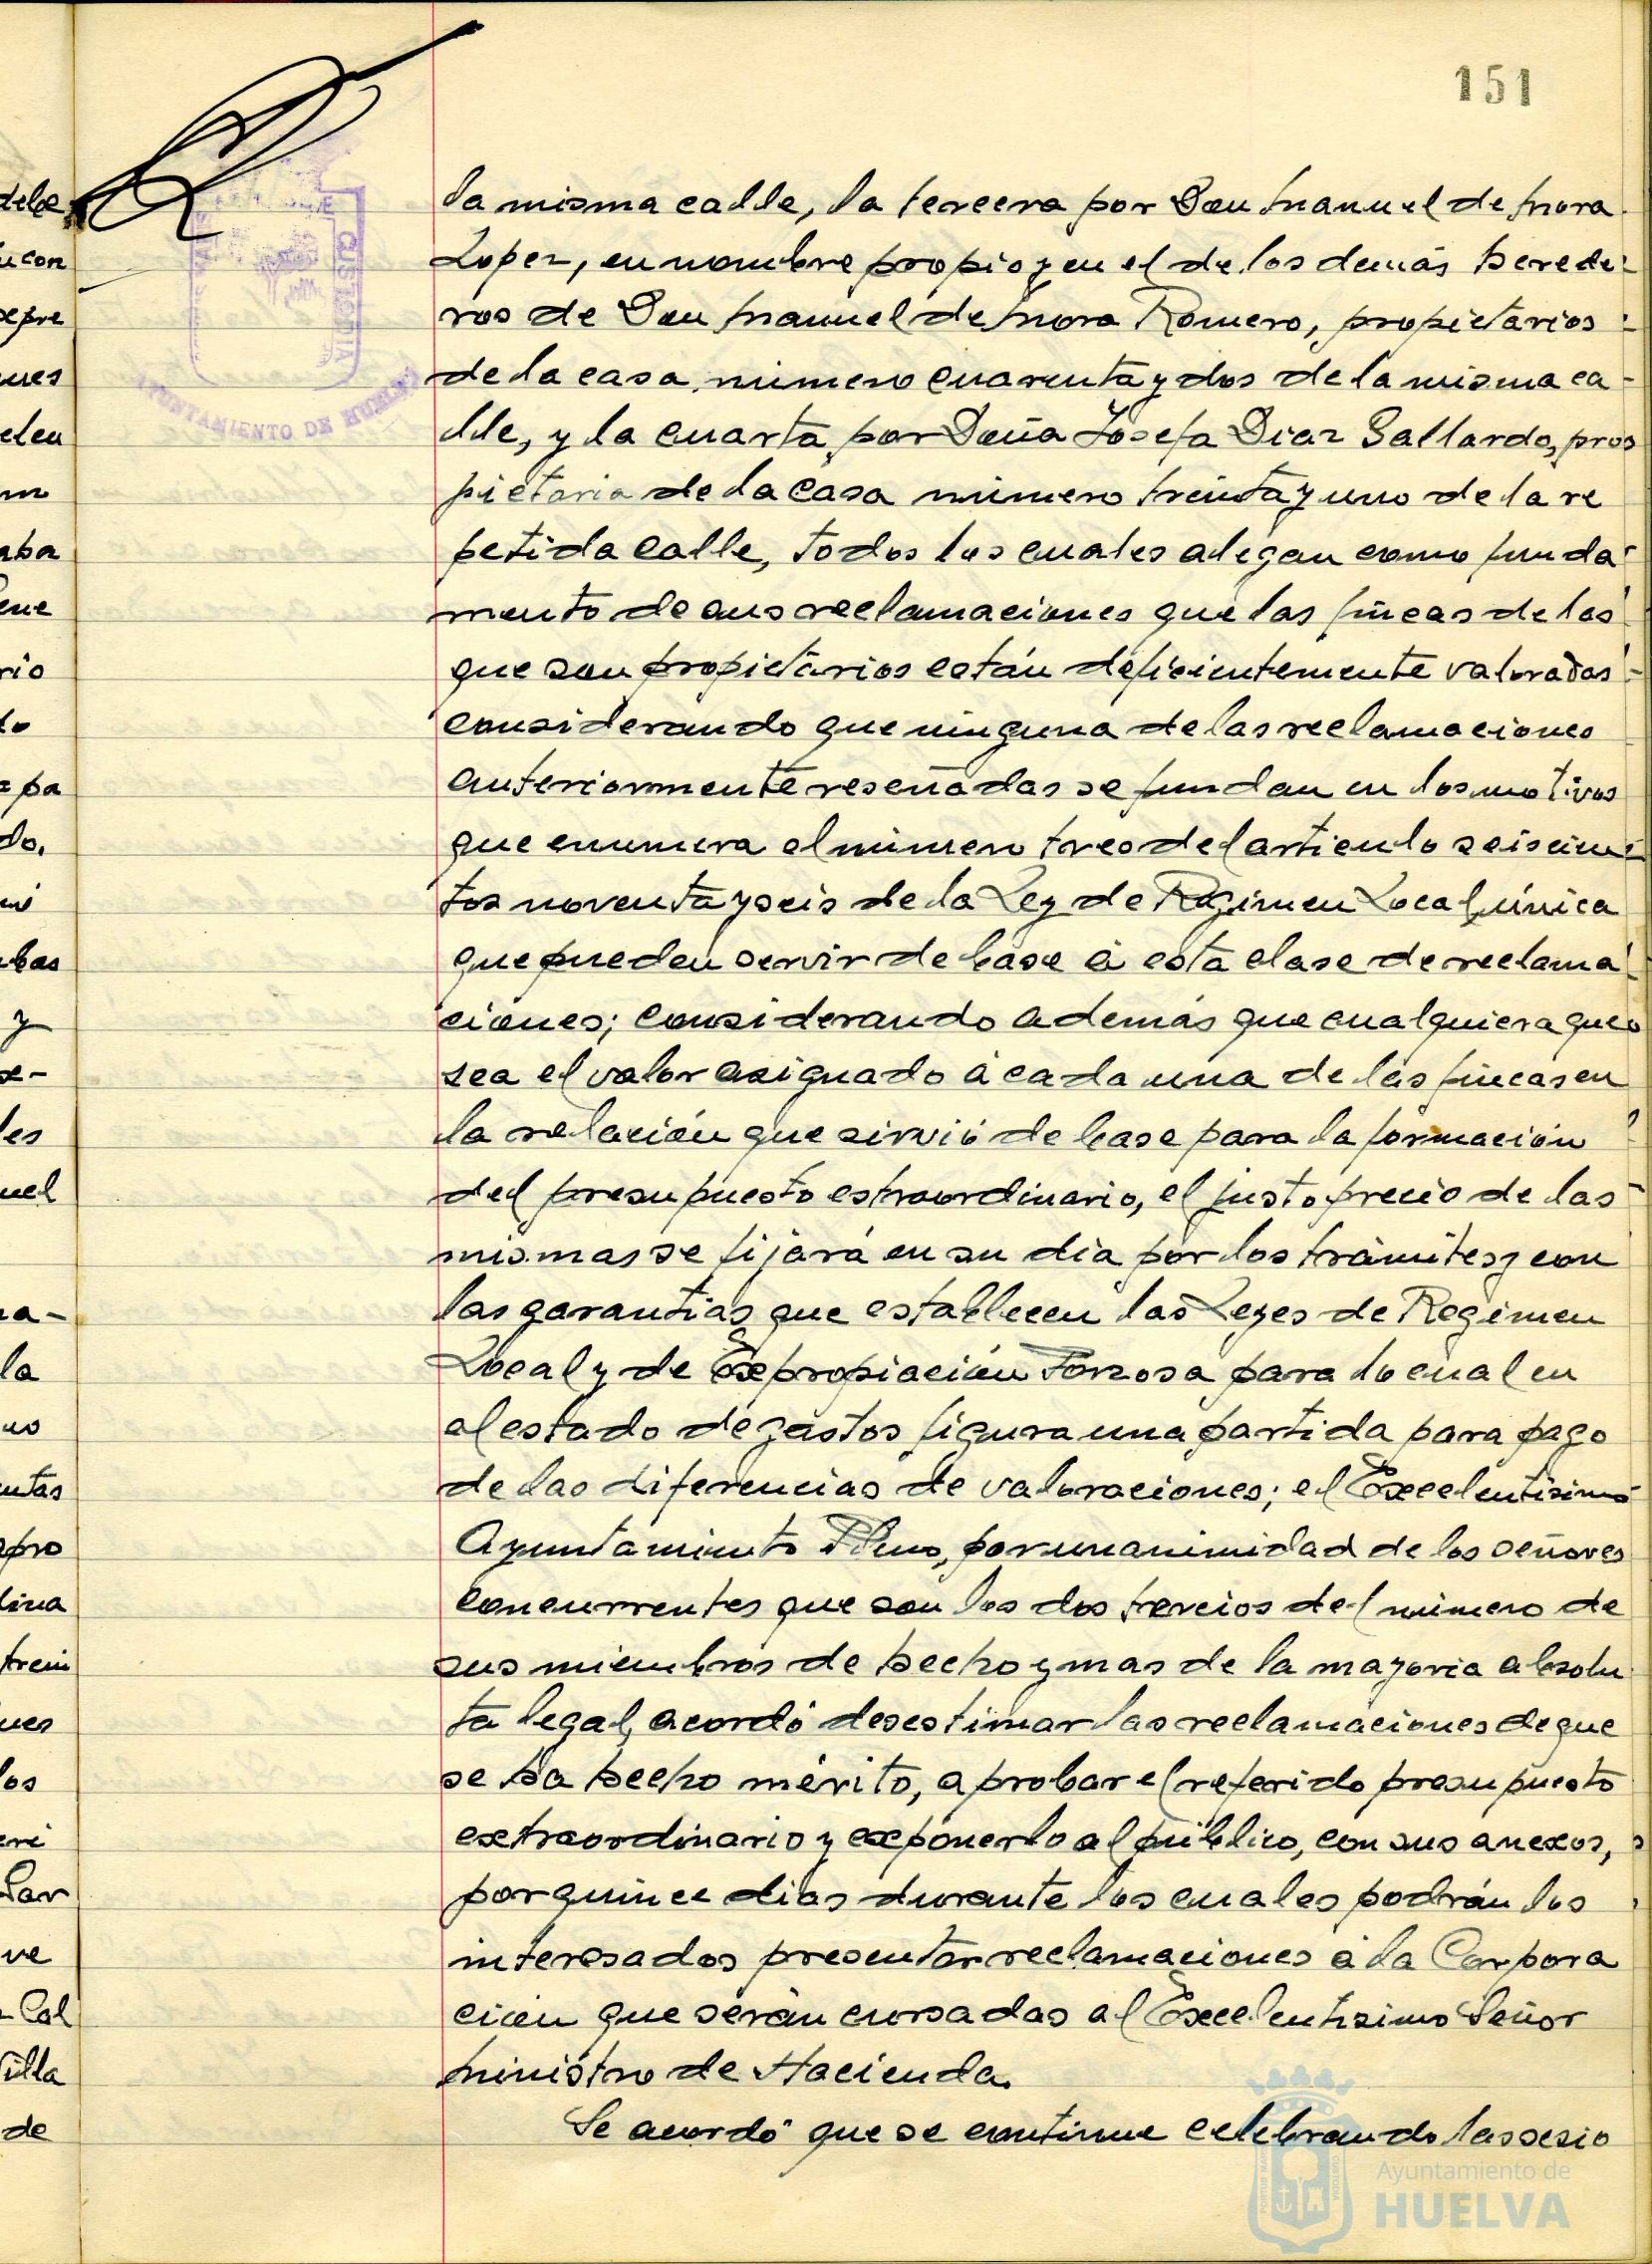 151
la misma calle, la tercera por Don Manuel de Mora
Lopez, en nombre propio y en el de los demás herede-
ros de Don Manuel de Mora Romero, propietarios
de la casa número cuarenta y dos de la misma ca-
lle, y la cuarta por Doña Josefa Diaz Gallardo, pro
pietaria de la casa número treinta y uno de la re
petida calle, todos los cuales alegan como funda-
mento de sus reclamaciones que las fincas de las
que son propietarios están deficientemente valoradas
considerando que ninguna de las reclamaciones
anteriormente reseñadas se fundan en los motivos
que enumera el número tres del artículo seiscien-
tos noventa y seis de la Ley de Régimen Local única
que pueden servir de base á esta clase de reclama
ciones; considerando además que cualquiera que
sea el valor asignado á cada una de las fincas en
la relación que sirvió de base para la formación
del presupuesto estraordinario, el justo precio de las
mismas se fijará en su día por los trámites y con
las garantías que establecen las Leyes de Regimen
Local y de Expropiación Forzosa para lo cual en
el estado de gastos figura una partida para pago
de las diferencias de valoraciones; el Excelentísimo
Ayuntamiento Pleno, por unanimidad de los señores
concurrentes que son los dos tercios del número de
sus miembros de hecho y mas de la mayoria absolu
ta legal, acordó desestimar las reclamaciones de que
se ha hecho mérito, aprobar el referido presupuesto
extraordinario y exponerlo al público, con sus anexos,
por quince dias durante los cuales podrán los
interesados presentar reclamaciones á la Corpora
ción que serán cursadas al Excelentisimo Señor
Ministro de Hacienda.
Se acordó que se continue celebrando las sesio
debe
con
epre
ues
elen
aba
rio
lo
pa
do.
bas
y
se-
les
uel
na-
la
no
entas
apro
trein
los
ve
Cal
villa
de
CUSTODIA
AYUNTAMIENTO DE HUELVA
Ayuntamiento de
HUELVA